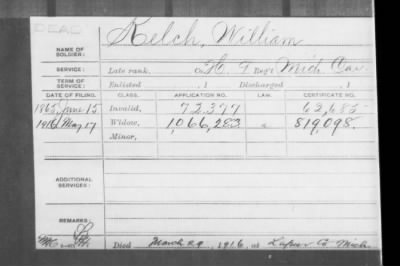 DEAD
NAME OF SOLDIER: Kelch, William
SERVICE: Late rank, Co. H, 9 Reg't Mich. Cav.
TERM OF SERVICE: Enlisted , 1 Discharged , 1
DATE OF FILING. CLASS. APPLICATION NO. LAW. CERTIFICATE NO.
1865, June 15 Invalid, 72,377 62,685
1916, May 17 Widow, 1,066,283 a 819,098.
Minor,
ADDITIONAL SERVICES:
REMARKS:
Died March 29, 1916, at Lapeer Co Mich.